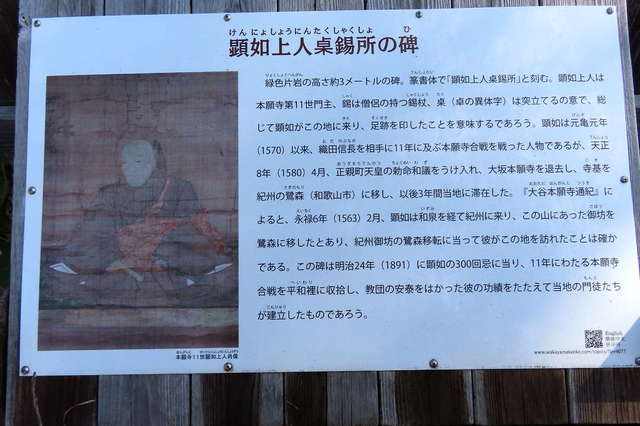 顕如上人桌錫所の碑
けんにょしょうにんたくしゃくしょ ひ
緑色片岩の高さ約3メートルの碑。篆書体で「顕如上人桌錫所」と刻む。顕如上人は
本願寺第11世門主、錫は僧侶の持つ錫杖、桌（卓の異体字）は突立てるの意で、総
じて顕如がこの地に来り、足跡を印したことを意味するであろう。顕如は元亀元年
（1570）以来、織田信長を相手に11年に及ぶ本願寺合戦を戦った人物であるが、天正
8年（1580）4月、正親町天皇の勅命和議をうけ入れ、大坂本願寺を退去し、寺基を
紀州の鷺森（和歌山市）に移し、以後3年間当地に滞在した。『大谷本願寺通紀』に
よると、永禄6年（1563）2月、顕如は和泉を経て紀州に来り、この山にあった御坊を
鷺森に移したとあり、紀州御坊の鷺森移転に当って彼がこの地を訪れたことは確か
である。この碑は明治24年（1891）に顕如の300回忌に当り、11年にわたる本願寺
合戦を平和裡に収拾し、教団の安泰をはかった彼の功績をたたえて当地の門徒たち
が建立したものであろう。
本願寺11世顕如上人肖像
English